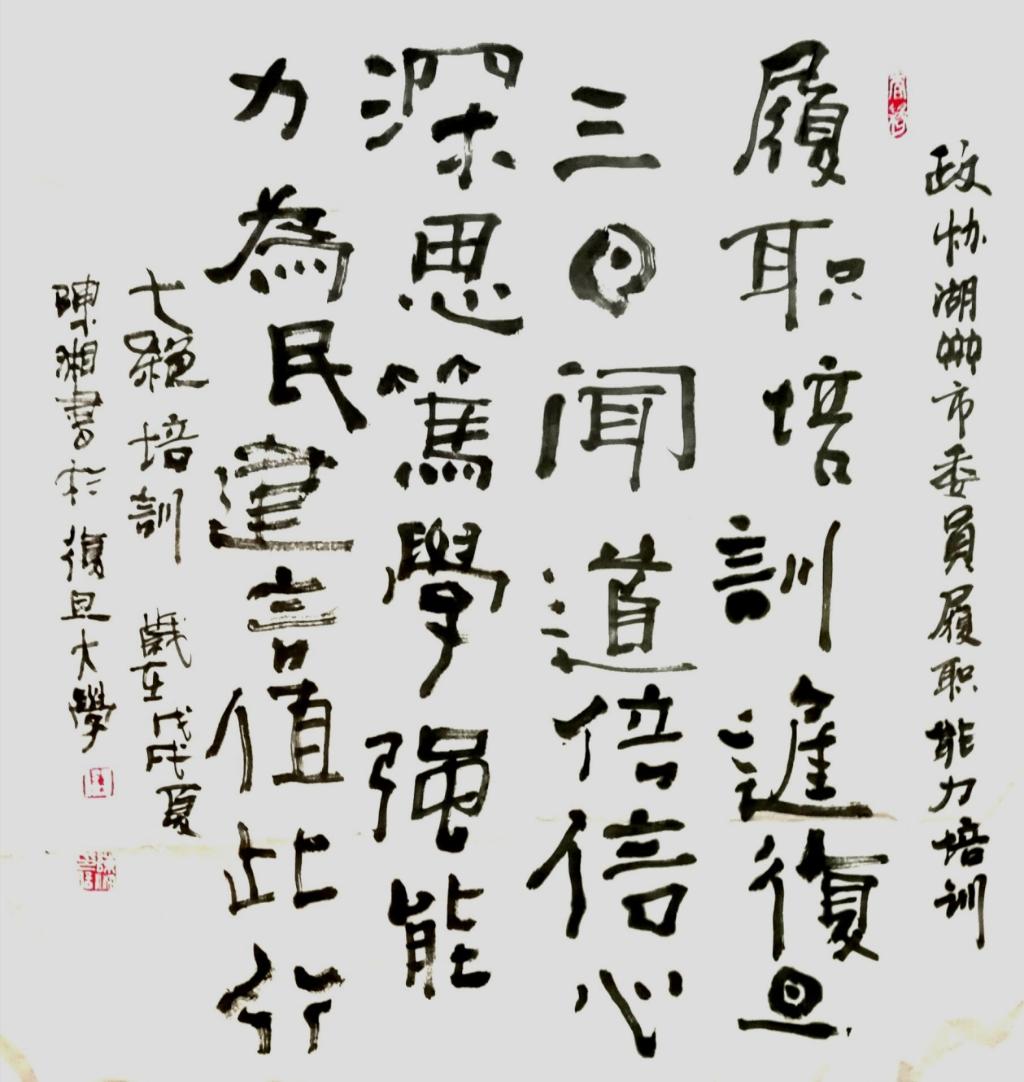 政协湖州市委員履职能力培训
履职培訓進復旦
三日聞道倍信心
深思篤學强能
力為民建言值此行
七絕培訓 歲在戊戌夏
陳湘書於復旦大學